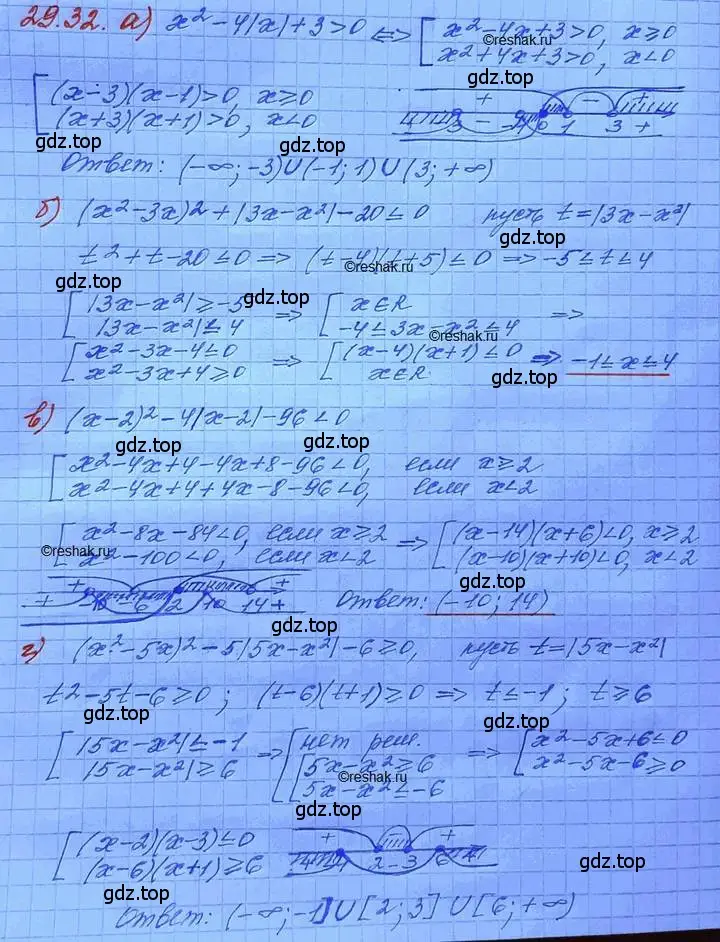 29.32. а) x²-4|x|+3>0 <=> [ x²-4x+3>0, x≥0
x²+4x+3>0, x<0
©reshak.ru
gdz.top
[ (x-3)(x-1)>0, x≥0
(x+3)(x+1)>0, x<0
+ - +
-3 - -1 0 1 3 +
gdz.top gdz.top
Ответ: (-∞; -3)∪(-1; 1)∪(3; +∞)
б) (x²-3x)²+|3x-x²|-20≤0 пусть t=|3x-x²|
gdz.top
t²+t-20≤0 => (t-4)(t+5)≤0 => -5≤t≤4
gdz.top ©reshak.ru
[ |3x-x²|≥-5 => [ x∈R =>
|3x-x²|≤4 -4≤3x-x²≤4
gdz.top ©reshak.ru
[ x²-3x-4≤0 => [ (x-4)(x+1)≤0 => -1≤x≤4
x²-3x+4≥0 x∈R
gdz.top
в) (x-2)²-4|x-2|-96<0
gdz.top gdz.top
[ x²-4x+4-4x+8-96<0, если x≥2
x²-4x+4+4x-8-96<0, если x<2
[ x²-8x-84<0, если x≥2 => [ (x-14)(x+6)<0, x≥2
x²-100<0, если x<2 (x-10)(x+10)<0, x<2
©reshak.ru
gdz.top
+ +
+ -10 -6 2 10 14 +
Ответ: (-10; 14)
gdz.top
г) (x²-5x)²-5|5x-x²|-6≥0, пусть t=|5x-x²|
t²-5t-6≥0; (t-6)(t+1)≥0 => t≤-1; t≥6
gdz.top gdz.top
[ |5x-x²|≤-1 => [ нет реш. => [ x²-5x+6≤0
|5x-x²|≥6 5x-x²≥6 x²-5x-6≥0
5x-x²≤-6
©reshak.ru
gdz.top
[ (x-2)(x-3)≤0
(x-6)(x+1)≥6
+ - +
-1 2 - 3 6
gdz.top
gdz.top
Ответ: (-∞; -1]∪[2; 3]∪[6; +∞)